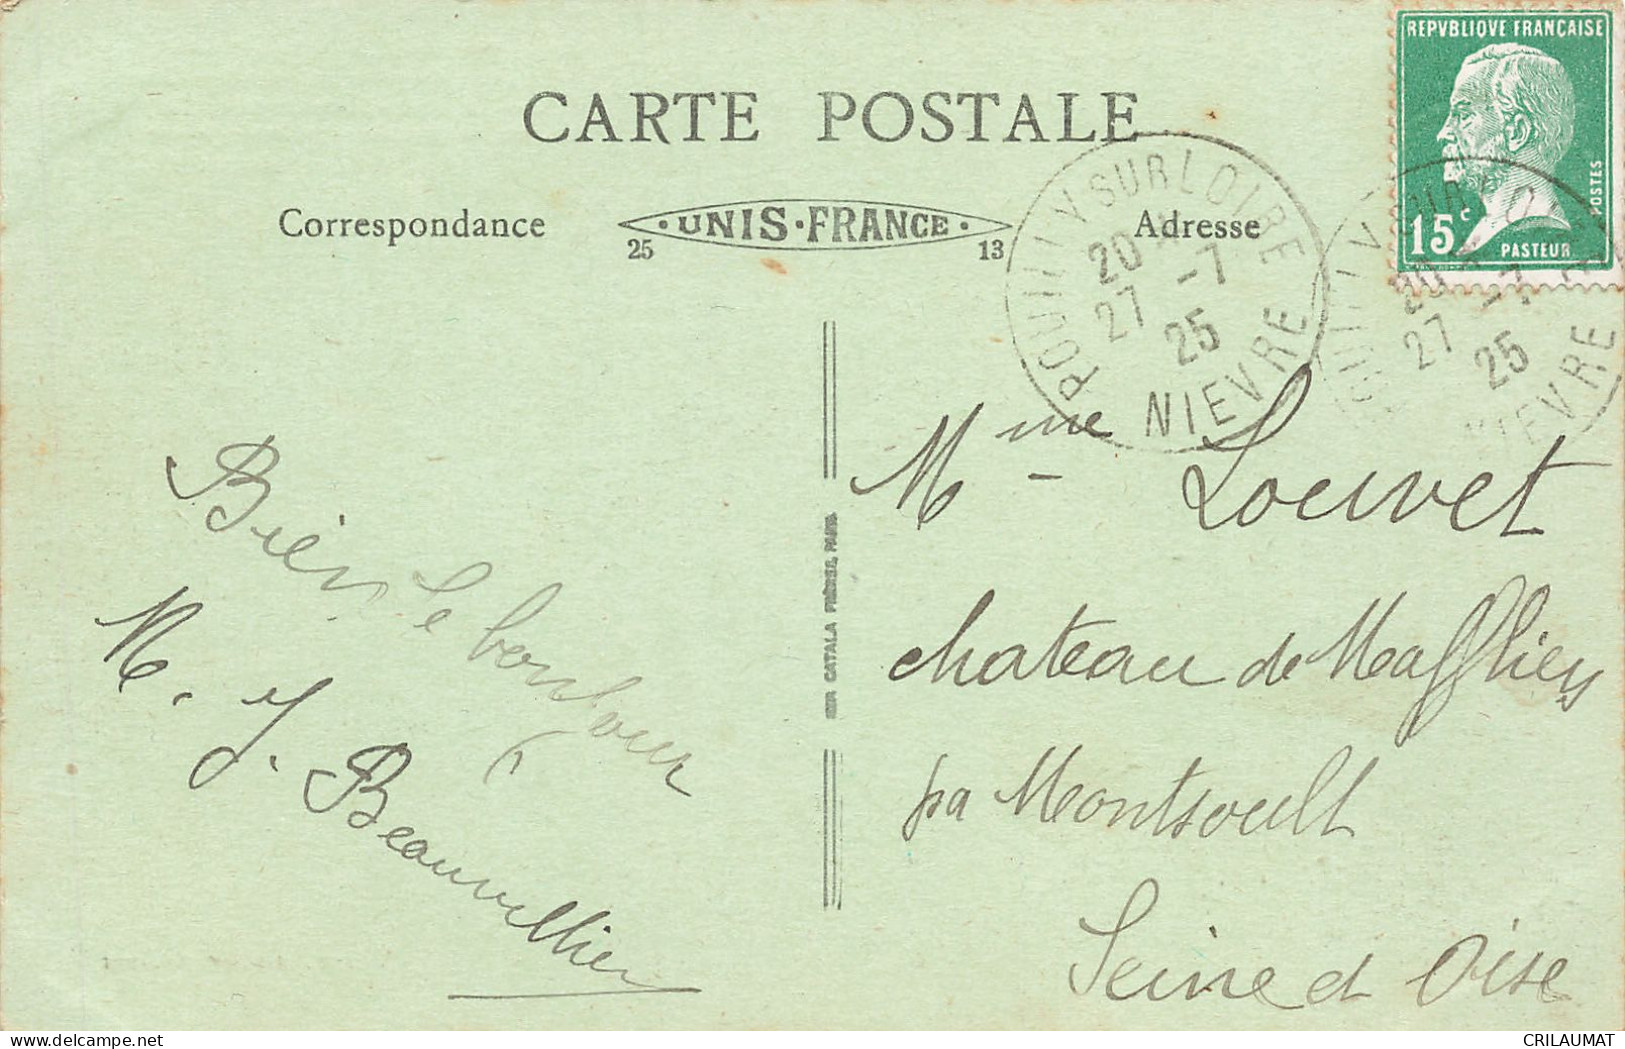 CARTE POSTALE
Correspondance
· UNIS · FRANCE ·
25 13
Adresse
REPVBLIQVE FRANÇAISE
15c
POSTES
PASTEUR
POUILLY SUR LOIRE
20
27 -7
25
NIEVRE
20
27 -7
25
NIEVRE
CATALA FRÈRES, PARIS
Bien le bonjour
M. J. Beauvillier
Mme Louvet
chateau de Maffliers
pa Montsoult
Seine et Oise
CRILAUMAT